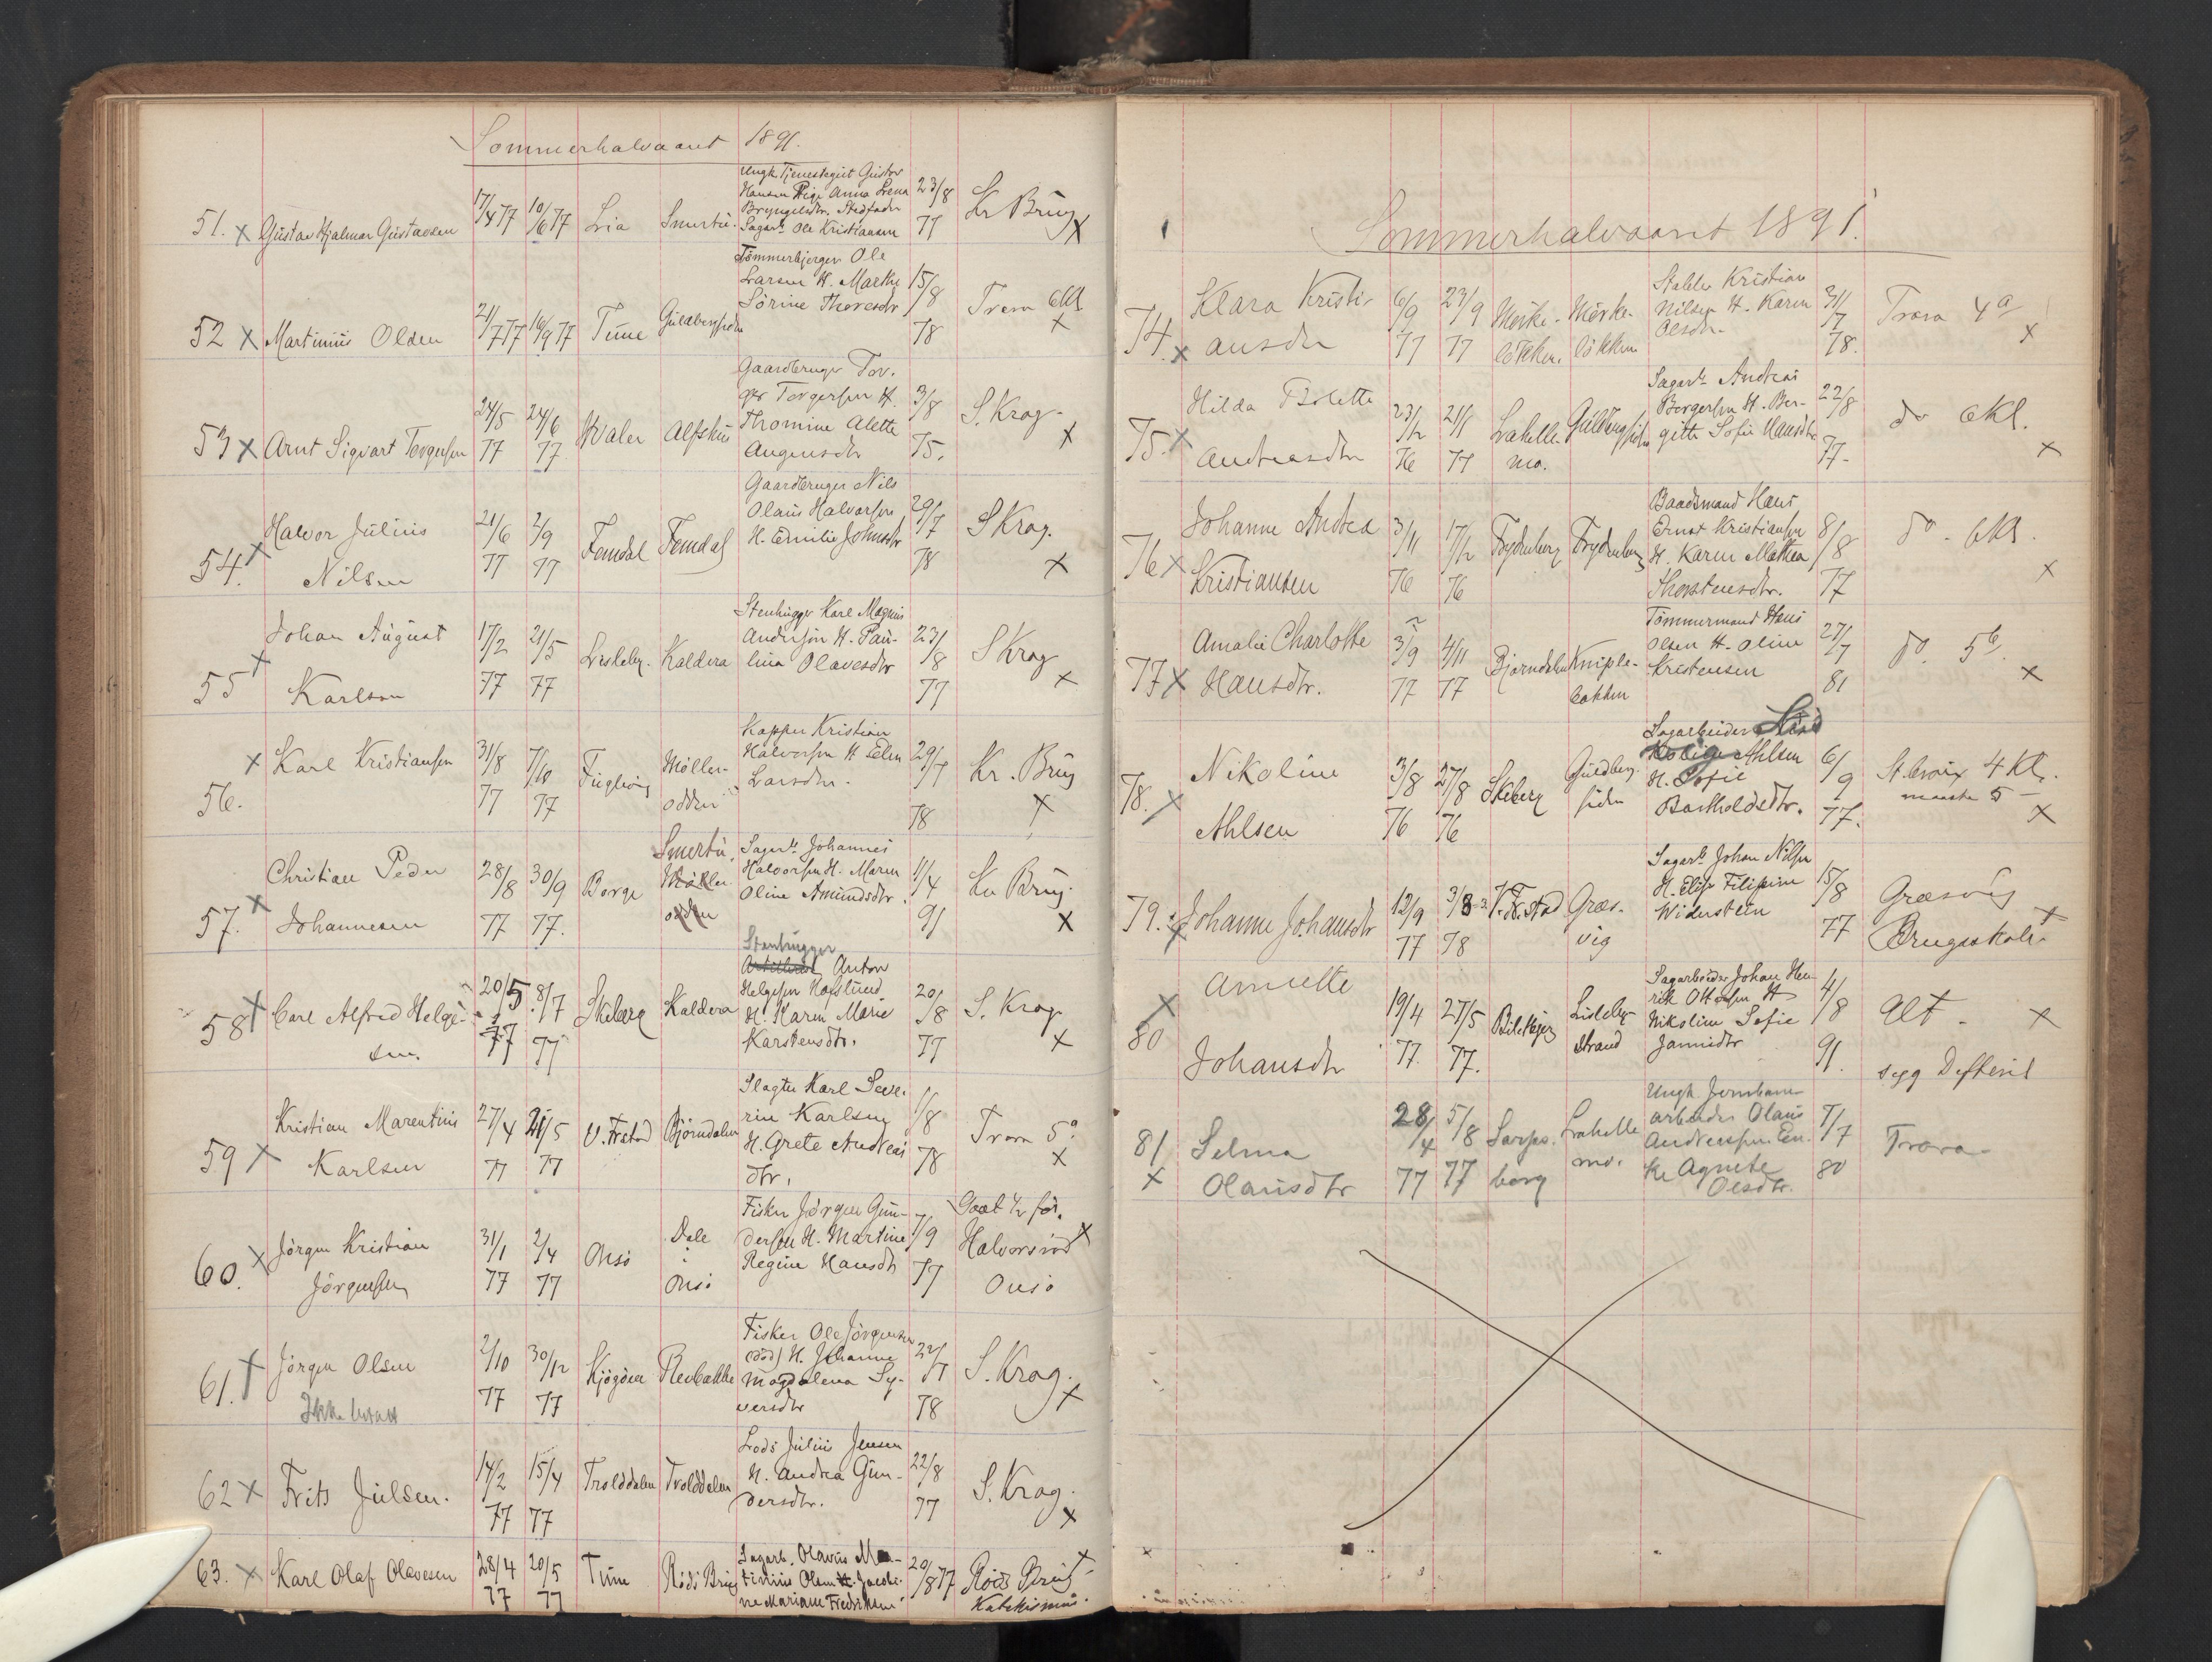 Sommerhalvaaret 1891.
51. x Gustav Hjalmar Gustavsen 17/4 77 10/6 77 Lia Smertu. Ungk. Tjenestegut Gustav
Hansen Pige Anna Lrena
Bryngelsdtr. Stedfader
Sagarb. Ole Kristiansen 23/8 77 Kr Brug x
52 x Martinius Olsen 21/7 77 16/9 77 Tune Guldbergsiden Tømmerbjerger Ole
Larsen H. Marthe
Sörine Thoresdtr 15/8 78 Trara 6kl x
53 x Arnt Sigvart Torgersen 24/5 77 24/6 77 Hvaler Alfheim Gaardbruger Tor-
ger Torgersen H.
Thomine Alette
Augensdtr 3/8 75. S. Krag. x
54. x Halvor Julius
Nilsen 21/6 77 2/9 77 Femdal Femdal Gaardbruger Nils
Olaus Halvorsen
H. Emilie Johnsdtr 29/7 78 S Krag. x
55 x Johan August
Karlsen 17/2 77 21/5 77 Lisleby. Kaldera Stenhugger Karl Magnus
Andersen H. Pau-
lina Olavesdtr 23/8 77 S Krag x
56. x Karl Kristiansen 31/8 77 7/10 77 Fuglevig Möller-
odden Kapper Kristian
Halvorsen H Elen
Larsdtr. 29/7 78 Kr. Brug x
57. x Christian Peder
Johannesen 28/8 77 30/9 77. Borge Smertu, Möller
odden Sagarb. Johannes
Halvorsen H. Maren
Oline Amundsdtr. 11/4 91 Kr Brug. x
58 x Carl Alfred Helge-
sen. 20/5 77 8/7 77 Skeberg Kaldera Stenhugger
Anton
Helgesen Hafslund
H. Karen Marie
Karstensdtr. 20/8 77 S. Krag x
59 x Kristian Marentius
Karlsen 27/4 77 21/5 77 V. Frstad Bjørndalen Slagter Karl Seve-
rin Karlsen
H. Grete Andreas
dtr. 1/8 78 Trara 5a x
60. x Jörgen Kristian
Jörgensen 31/1 77 2/4 77 Onsö Dale
i
Onsö Fisker Jörgen Gun-
dersen H. Martine
Regine Hansdtr 7/9 77 Gaat 1/2 för.
Halvorsröd x
Onsö
61. x Jörgen Olsen
Ikke 2/10 77 30/12 77 Kjögöen Fisker Ole Jörgensen
(död) H. Johanne
Magdalena Sy-
versdtr 22/7 78 S. Krag. x
62 x Frits Julsen. 14/2 77 15/4 77 Trolddalen Trolddalen Lods Julius Jensen
H. Andrea Gun-
dersdtr. 22/8 77 S. Krag. x
63. x Karl Olaf Olavesen 28/4 77 20/5 77 Tune Röds Brug Sagarb. Olavus Ma-
tinius Olsen H. Jacobi-
ne Mariane Fredriksen 20/8 77 Röds Brug x
Katekismus.
Sommerhalvaaret 1891.
74. x Klara Kristi-
ansdtr 6/9 77 23/9 77 Mörke-
lökken. Mörke-
lökken Stabler Kristian
Nilsen H. Karen
Olsdtr. 31/7 78. Trara 4a x
75. x Hilda Bolette
Andreasdtr 23/12 76 21/1 77 Lahelle-
mo. Guldbergsiden Sagarb. Andreas
Bergersen H. Ber-
gitte Sofie Hansdtr 22/8 77- do 6kl. x
76 x Johanne Andrea
Kristiansen 3/11 76 17/12 76 Frydenberg Frydenberg Baadsmand Hans
Ernst Kristiansen
H. Karen Mathea
Thorstensdtr. 8/8 77 do. 6kl. x
77 x Amalie Charlotte
Hansdtr. 3/9 77 4/11 77 Bjørndalen Kniple-
bakken Tömmermand Hans
Olsen H. Oline
Kristensen 27/7 81 do. 5b. x
78. x Nikoline
Ahlsen 3/8 76 27/8 76 Skeberg Guldberg-
siden Sagarbeider
Ahlsen
H. Sofie
Bartholdsdtr. 6/9 77. St. Croix 4 Kl.
maaske 5 – x
79. x Johanne Johansdtr 12/9 77 3/3 78 V. Fr.stad Græs-
vig Sagarb. Johan Nilsen
H. Elise Filipine
Widerstein 15/8 77 Græsvig x
Brugsskole
80 x Annette
Johansdtr 19/4 77. 27/5 77. Lisleby-
strand Sagarbeider Johan Hen-
rik Ottosen H
Nikoline Sofie
Jannsdtr 4/8 91. Alt. x
syg Difterit
81 x Selma
Olausdtr 28/4 77 5/8 77 Sarps-
borg Lahelle
mo. Ungk. Jernbane-
arbeider Olaus
Andreassen. En-
ke Agnete
Olsdtr. 7/7 80 Trara